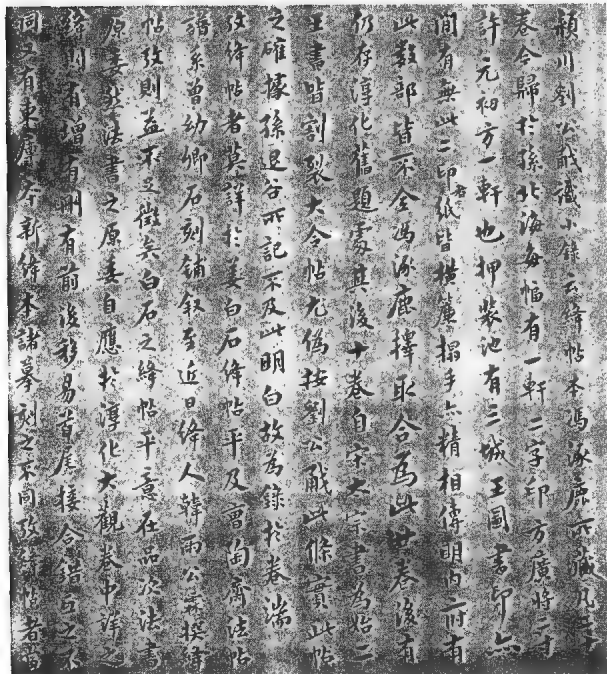 潁川劉公㦷識小錄云絳帖本馮涿鹿所藏凡三十
卷今歸於孫北海每幅有一軒二字印方廣將二寸
許元初方一軒也押裝池有三城王圖書印亦
間有無此二印者紙皆橫簾搨手亦精相傳明內府有
此數部皆不全馮涿鹿擇取合為此廿卷後有
仍存淳化舊題處其後十卷自宋太宗書為始二
王書皆割裂大令帖尤偽按劉公㦷此條實此帖
之確據孫退谷所記不及此明白故為錄於卷端
攷絳帖者莫詳於姜白石絳帖平及曹陶齋法帖
譜系曾幼卿石刻鋪敘至近日絳人韓雨公霖撰絳
帖攷則益不足徵矣白石之絳帖平意在品次法書
原委然法書之原委自應於淳化大觀卷中詳之
絳則有增有刪有前後移易首尾接合錯互之不
同又有東庫本新絳本諸摹刻之不同攷絳帖者當